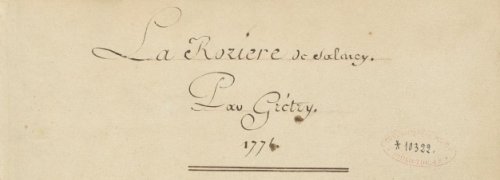 La Roziere de Salency.
Par Grétry.
1776
* 10322.